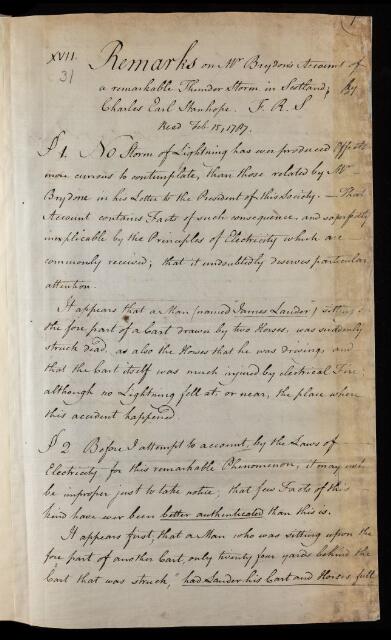 1
XVII.
31
Remarks on Mr. Brydon's Account of
a remarkable Thunder Storm in Scotland; By
Charles Earl Stanhope. F. R. S
Read Feb. 15, 1787.
§ 1. No Storm of Lightning has ever produced Effects
more curious to contemplate, than those related by Mr.
Brydone in his Letter to the President of this Society. — That
Account contains Facts of such consequence, and so perfectly
inexplicable by the Principles of Electricity which are
commonly received; that it undoubtedly deserves particular
attention.
It appears that a Man (named "James Lauder") sitting on
the fore part of a Cart drawn by two Horses, was suddenly
struck dead, as also the Horses that he was driving, and
that the Cart itself was much injured by electrical Fire;
although no Lightning fell at, or near, the place where
this accident happened.
§ 2 Before I attempt to account, by the Laws of
Electricity for this remarkable Phenomenon; it may not
be improper just to take notice, that few Facts of this
kind have ever been better authenticated than this is.
It appears first, that a Man who was sitting upon the
fore part of another Cart, only twenty four yards behind the
Cart that was struck, "had Lauder his Cart and Horses full